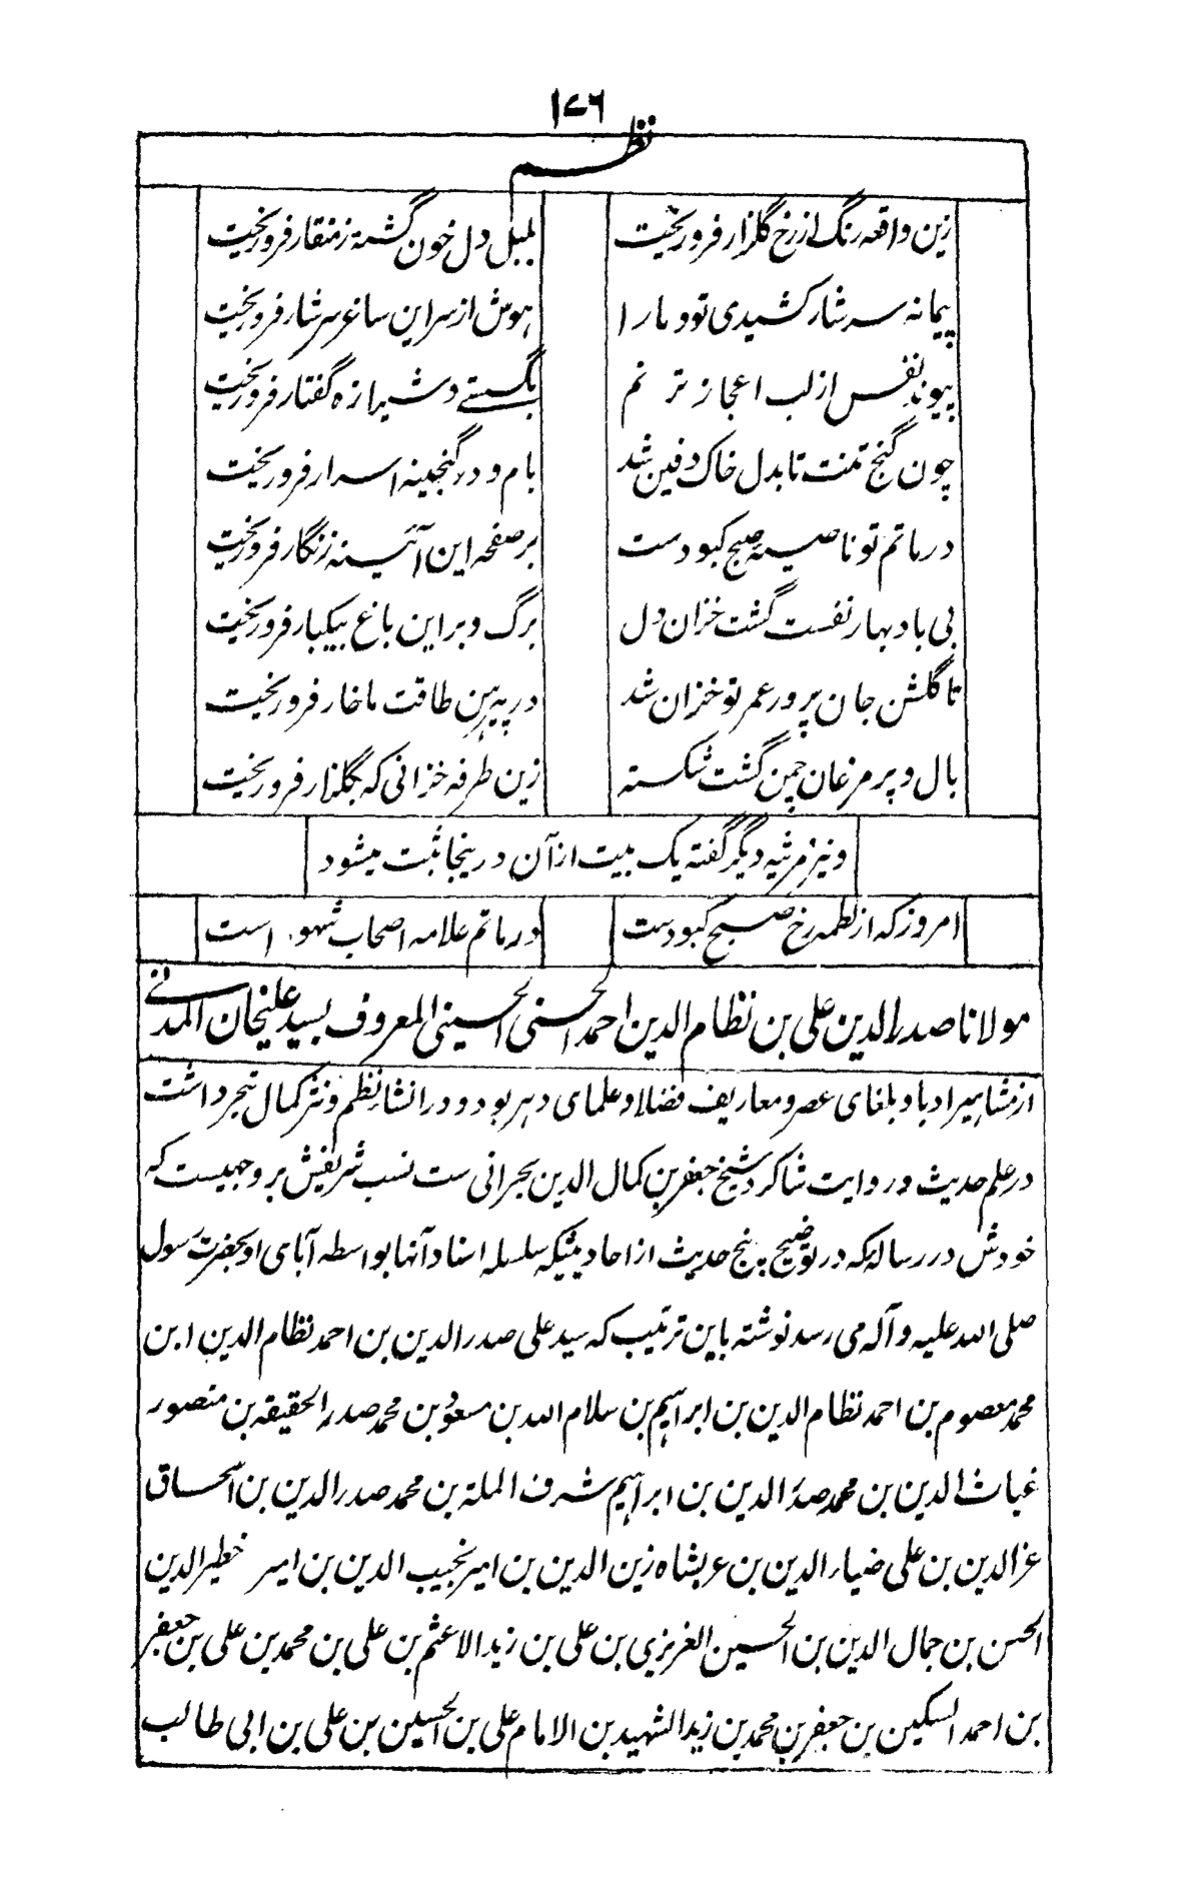 ۱۷۶
نظم
زین واقعه رنگ از رخ گلزار فروریخت
بلبل دل خون گشته ز منقار فروریخت
پیمانه سرشار کشیدی تو و مارا
هوش از سر این ساغر سرشار فروریخت
پیوند نفس از لب اعجاز ترنم
بگستے و شیرازه گفتار فروریخت
چون گنج تنت تا بدل خاک دفین شد
بام و در گنجینه اسرار فروریخت
در ماتم تو ناصیه صبح کبودست
بر صفحه این آئینه زنگار فروریخت
بی باد بهار نفست گشت خزان دل
برگ و بر این باغ بیکبار فروریخت
تا گلشن جان پرور عمر تو خزان شد
در پیرهن طاقت ما خار فروریخت
بال و پر مرغان چمن گشت شکسته
زین طرفه خزانی که بگلزار فروریخت
و نیز مرثیه دیگر گفته یک بیت ازان درینجا ثبت میشود
امروز که از لطمه رخ صبح کبودست
در ماتم علامه اصحاب شهود است
مولانا صدرالدین علی بن نظام الدین احمد الحسنی الحسینی المعروف بسید علیخان المدنے
از مشاهیر ادبا و بلغای عصر و معاریف فضلا و علمای دهر بود و در انشاء نظم و نثر کمال تبحر داشت
در علم حدیث و روایت شاگرد شیخ جعفر بن کمال الدین بحرانی ست نسب شریفش بر وجهیست که
خودش در رساله که در توضیح پنج حدیث از احادیثیکه سلسله اسناد آنها بواسطه آبای او بحضرت رسول
صلی الله علیه و آله می رسد نوشته باین ترتیب که سید علی صدرالدین بن احمد نظام الدین ابن
محمد معصوم بن احمد نظام الدین بن ابراهیم بن سلام الله بن مسعود بن محمد صدر الحقیقه بن منصور
غیاث الدین بن محمد صدر الدین بن ابراهیم شرف الملة بن محمد صدر الدین بن اسحاق
عز الدین بن علی ضیاء الدین بن عربشاه زین الدین بن امیر نجیب الدین بن امیر خطیر الدین
الحسن بن جمال الدین بن الحسین العزیزی بن علی بن زید الاعثم بن علی بن محمد بن علی بن جعفر
بن احمد السکین بن جعفر بن محمد بن زید الشهید بن الامام علی بن الحسین بن علی بن ابی طالب